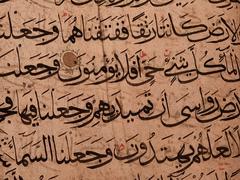 لارض كانتا رتقا ففتقناهما وجعلنا
الماء كل شيء حي أفلا يؤمنون وجعلنا
لارض رواسي أن تميد بهم وجعلنا فيها
لعلهم يهتدون وجعلنا السماء